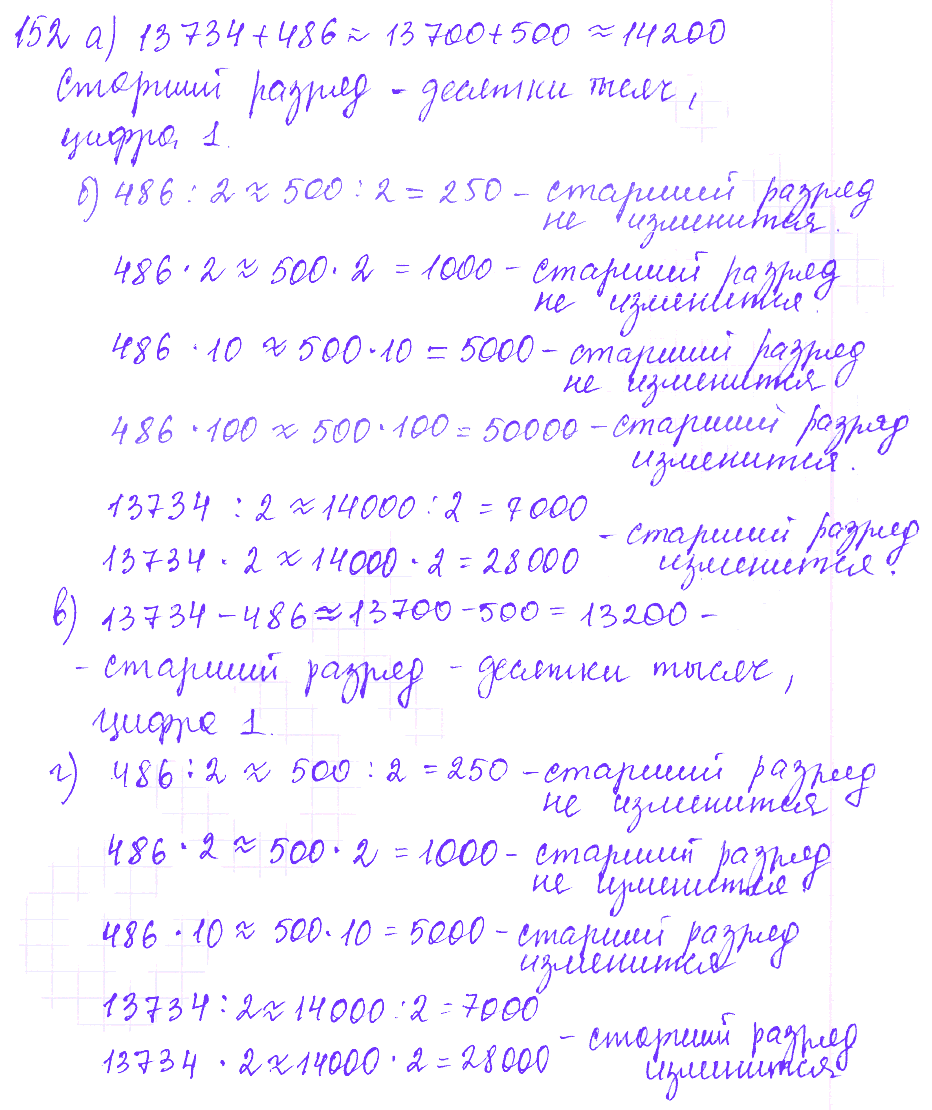 152 а) 13734+486≈13700+500≈14200
Старший разряд - десятки тысяч,
цифра 1.
б) 486:2≈500:2=250 - старший разряд
не изменится.
486·2≈500·2=1000 - старший разряд
не изменится.
486·10≈500·10=5000 - старший разряд
не изменится
486·100≈500·100=50000 - старший разряд
изменится.
13734:2≈14000:2=7000
13734·2≈14000·2=28000 - старший разряд
изменится.
в) 13734-486≈13700-500=13200 -
- старший разряд - десятки тысяч,
цифра 1.
г) 486:2≈500:2=250 - старший разряд
не изменится
486·2≈500·2=1000 - старший разряд
не изменится
486·10≈500·10=5000 - старший разряд
изменится
13734:2≈14000:2=7000
13734·2≈14000·2=28000 - старший разряд
изменится